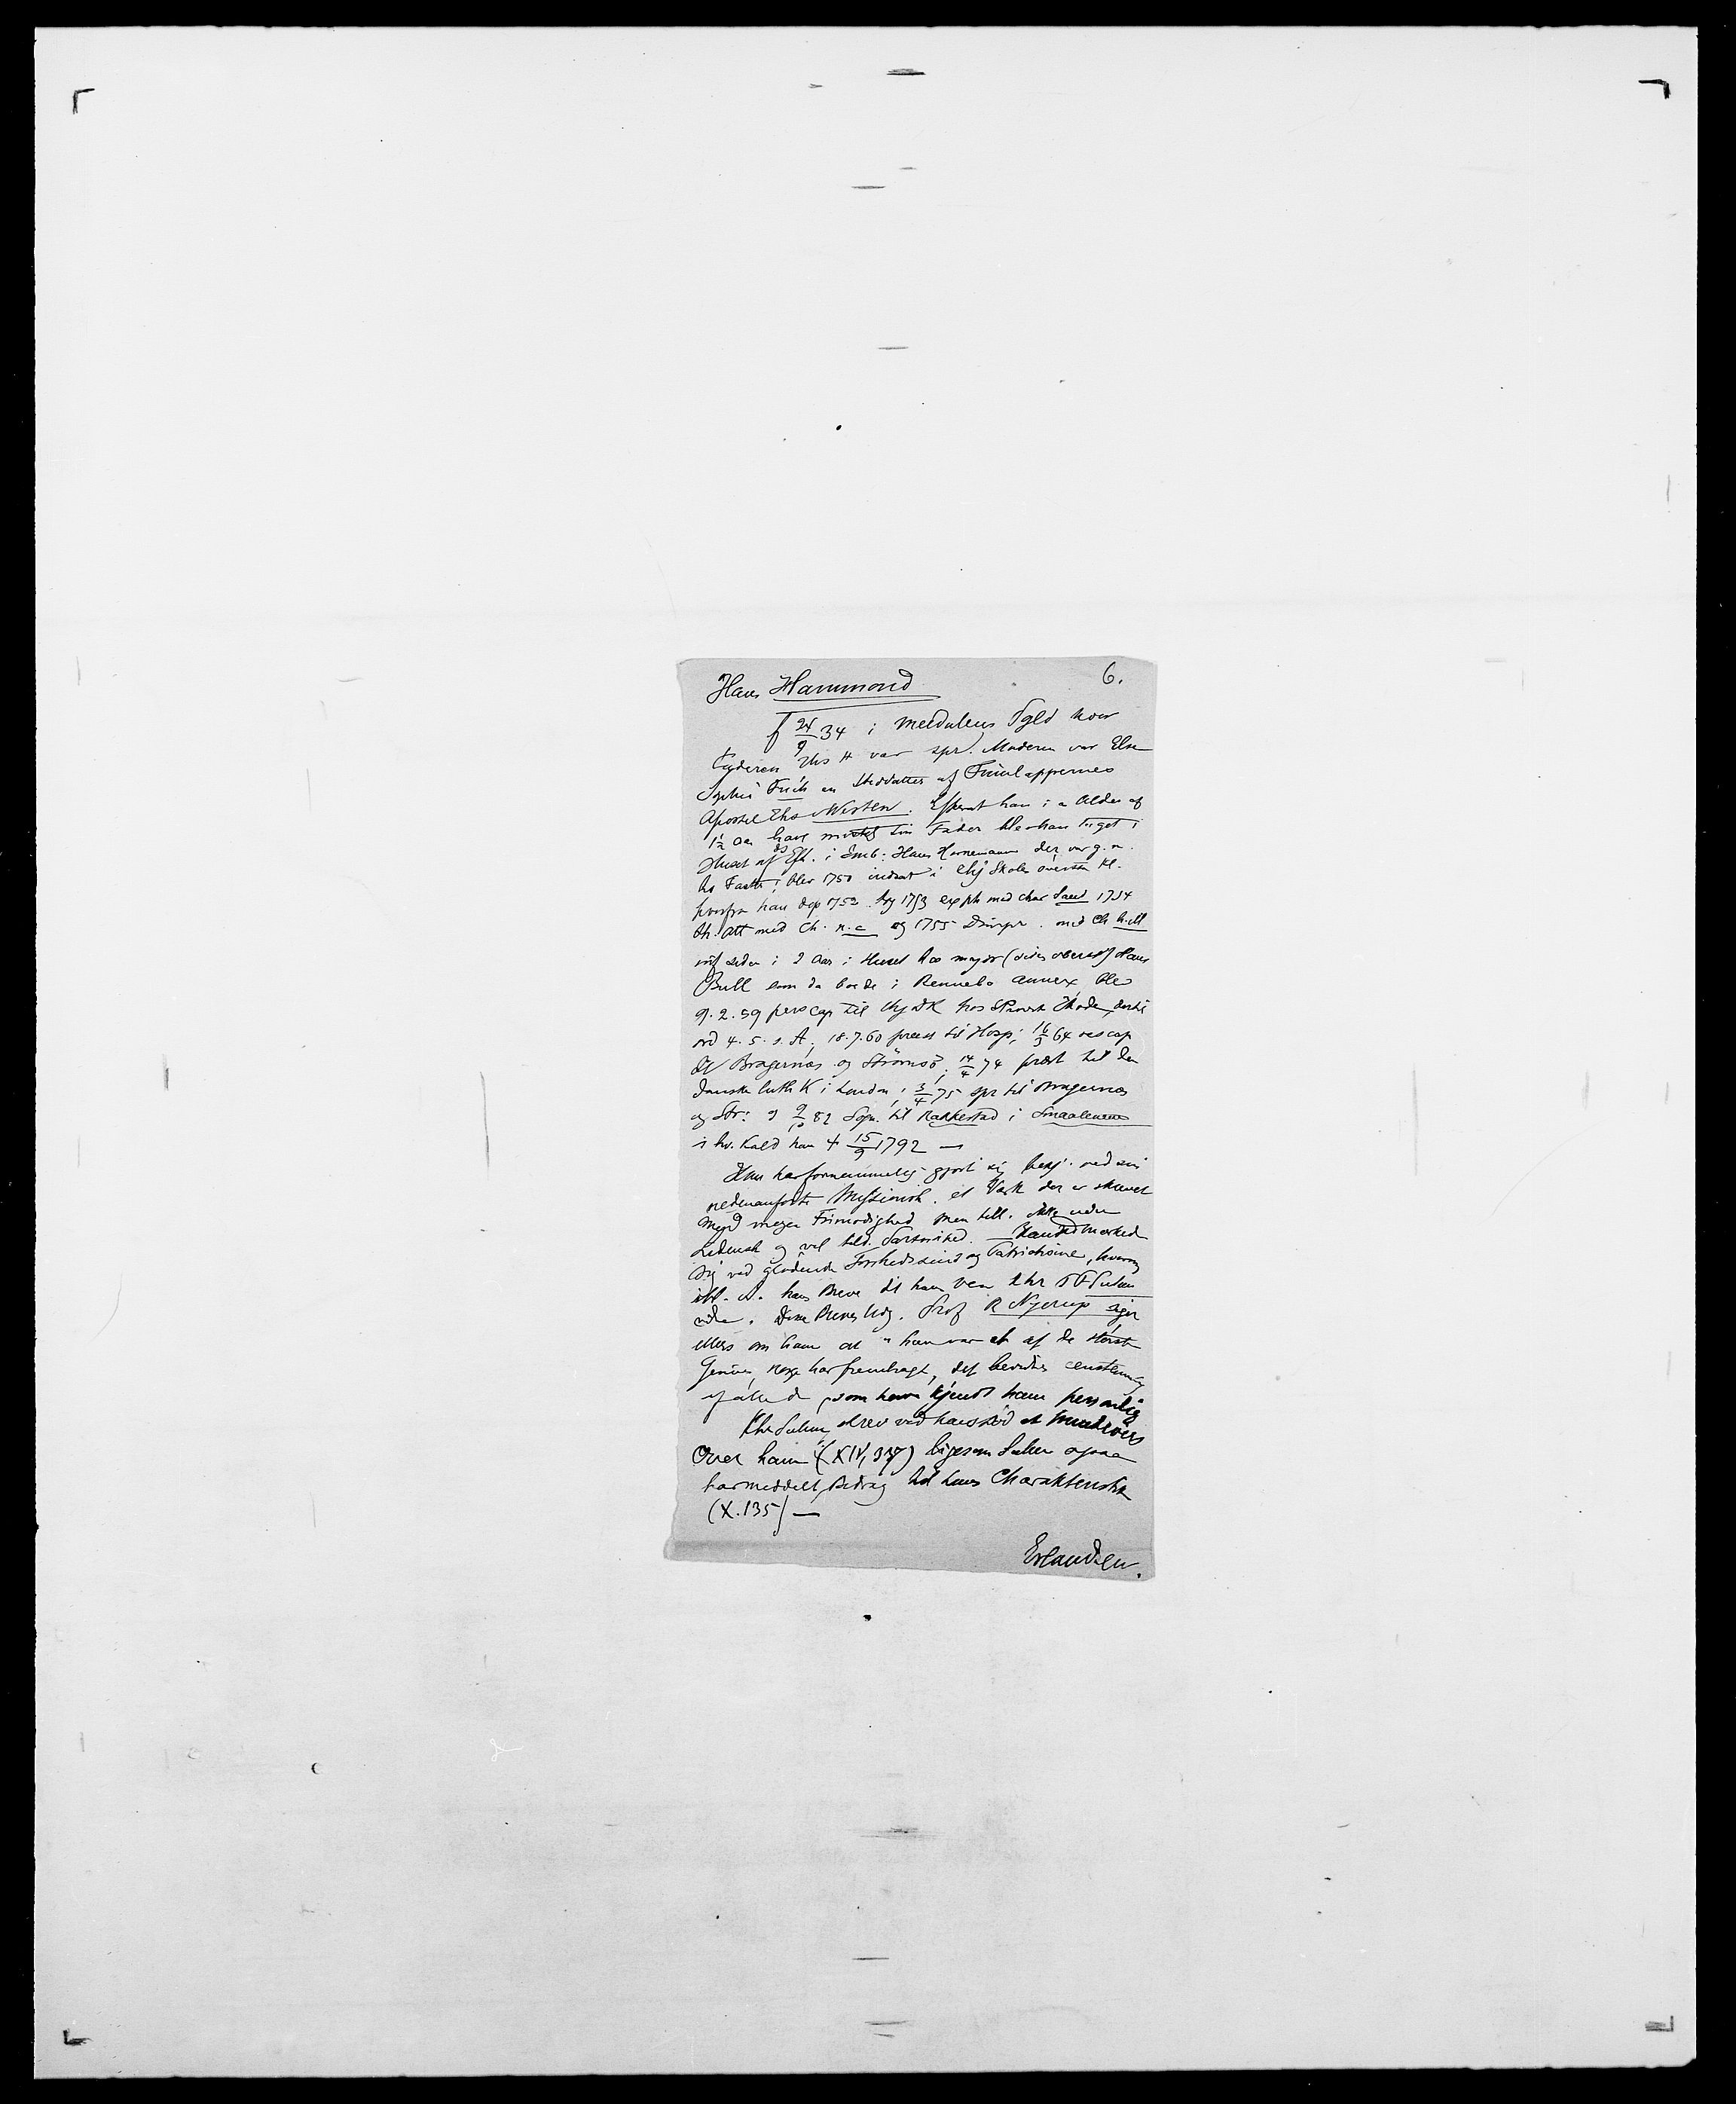 Hans Hammond 6.
f 24/9 34 i Meldalens Pgld hvor
Faderen Ths H var spr. Moderen var Else
Sophie Frich en Steddatter af Finlappernes
Apostel Ths Westen. Efterat han i a Alder af
1½ Aar havde mistet sin Fader blev han taget i
Huset af Eft. i Emb: Hans Hornemann der var g. m.
hs Faster; blev 1750 indsat i Chj Skoles øverste Kl.
hvorfra han dep 1752. tog 1753 ex ph med char laud 1754
th. att med Ch. n.c og 1755 Dimspr. med Ch h.ill
siden i 2 Aar i Huset hos major (siden oberst) Hans
Bull som da boede i Rennebo annex, blev
9.2.59 pers cap til Chj DK hos SProvst dertil
ord 4.5. s. A; 18.7.60 præst til Hosp; 16/3 64 res cap
til Bragernæs og Strømsø; 14/4 74 præst til den
danske luth K i London; 3/4 75 spr til Bragernæs
og Str: og 9/10 82 Sgn. til Rakkestad i Smaalenene
i hv. Kald han † 15/9 1792 —
Han har fornemmelig gjort sig bekj. ved sin
nedenanførte Missionsh. et Værk der er skrevet
med megen Frimodighed men till. ikke uden
Lidensk og vel tild. — Han udmærked
sig ved glødende Frihedssind og Patriotisme, hvorom
ibl. A. hans Breve til hans Ven P F Suhm
vidne. Disse Breves Udg. Prof R Nyerup siger
ellers om ham at "han var et af de største
Genier, Norge har frembragt, det bevidne eenstemmig
alle de, som have kjendt ham personlig
Suhm skrev ved hans Død et Mindevers
over ham (XIV, 37) ligesom Suhm ogsaa
har meddelt Bidrag til hans Charakteristik
(X.135) —
Erlandsen.